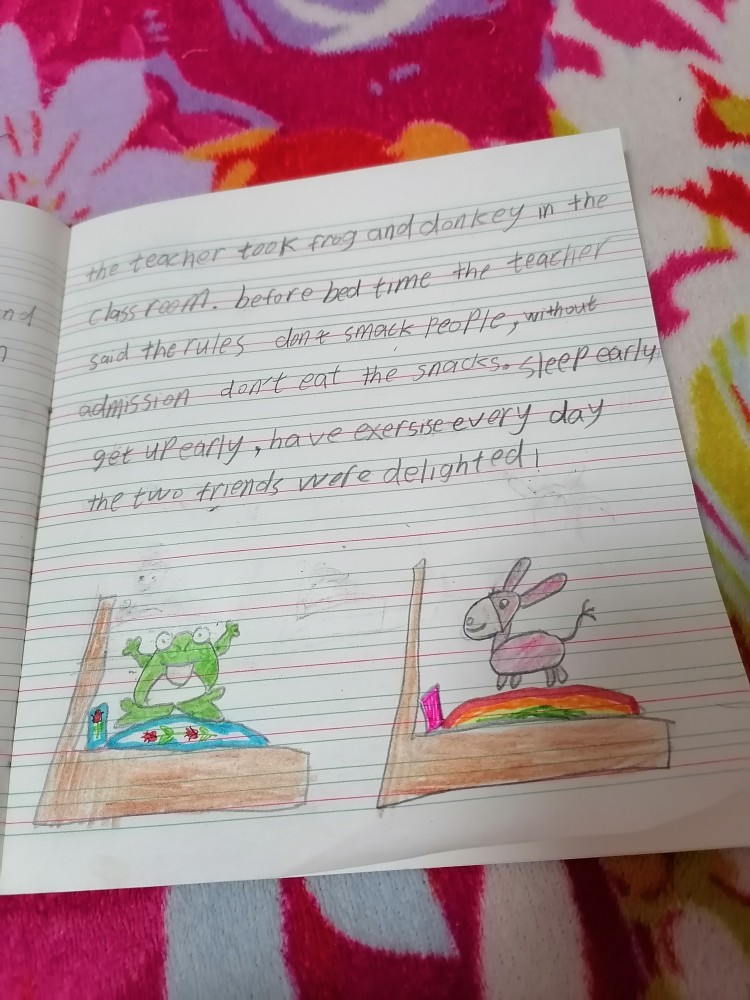 nd
the teacher took frog and donkey in the
class room. before bed time the teacher
said the rules don't smack people, without
admission don't eat the snacks. sleep early
get up early, have exersise every day
the two friends were delighted!